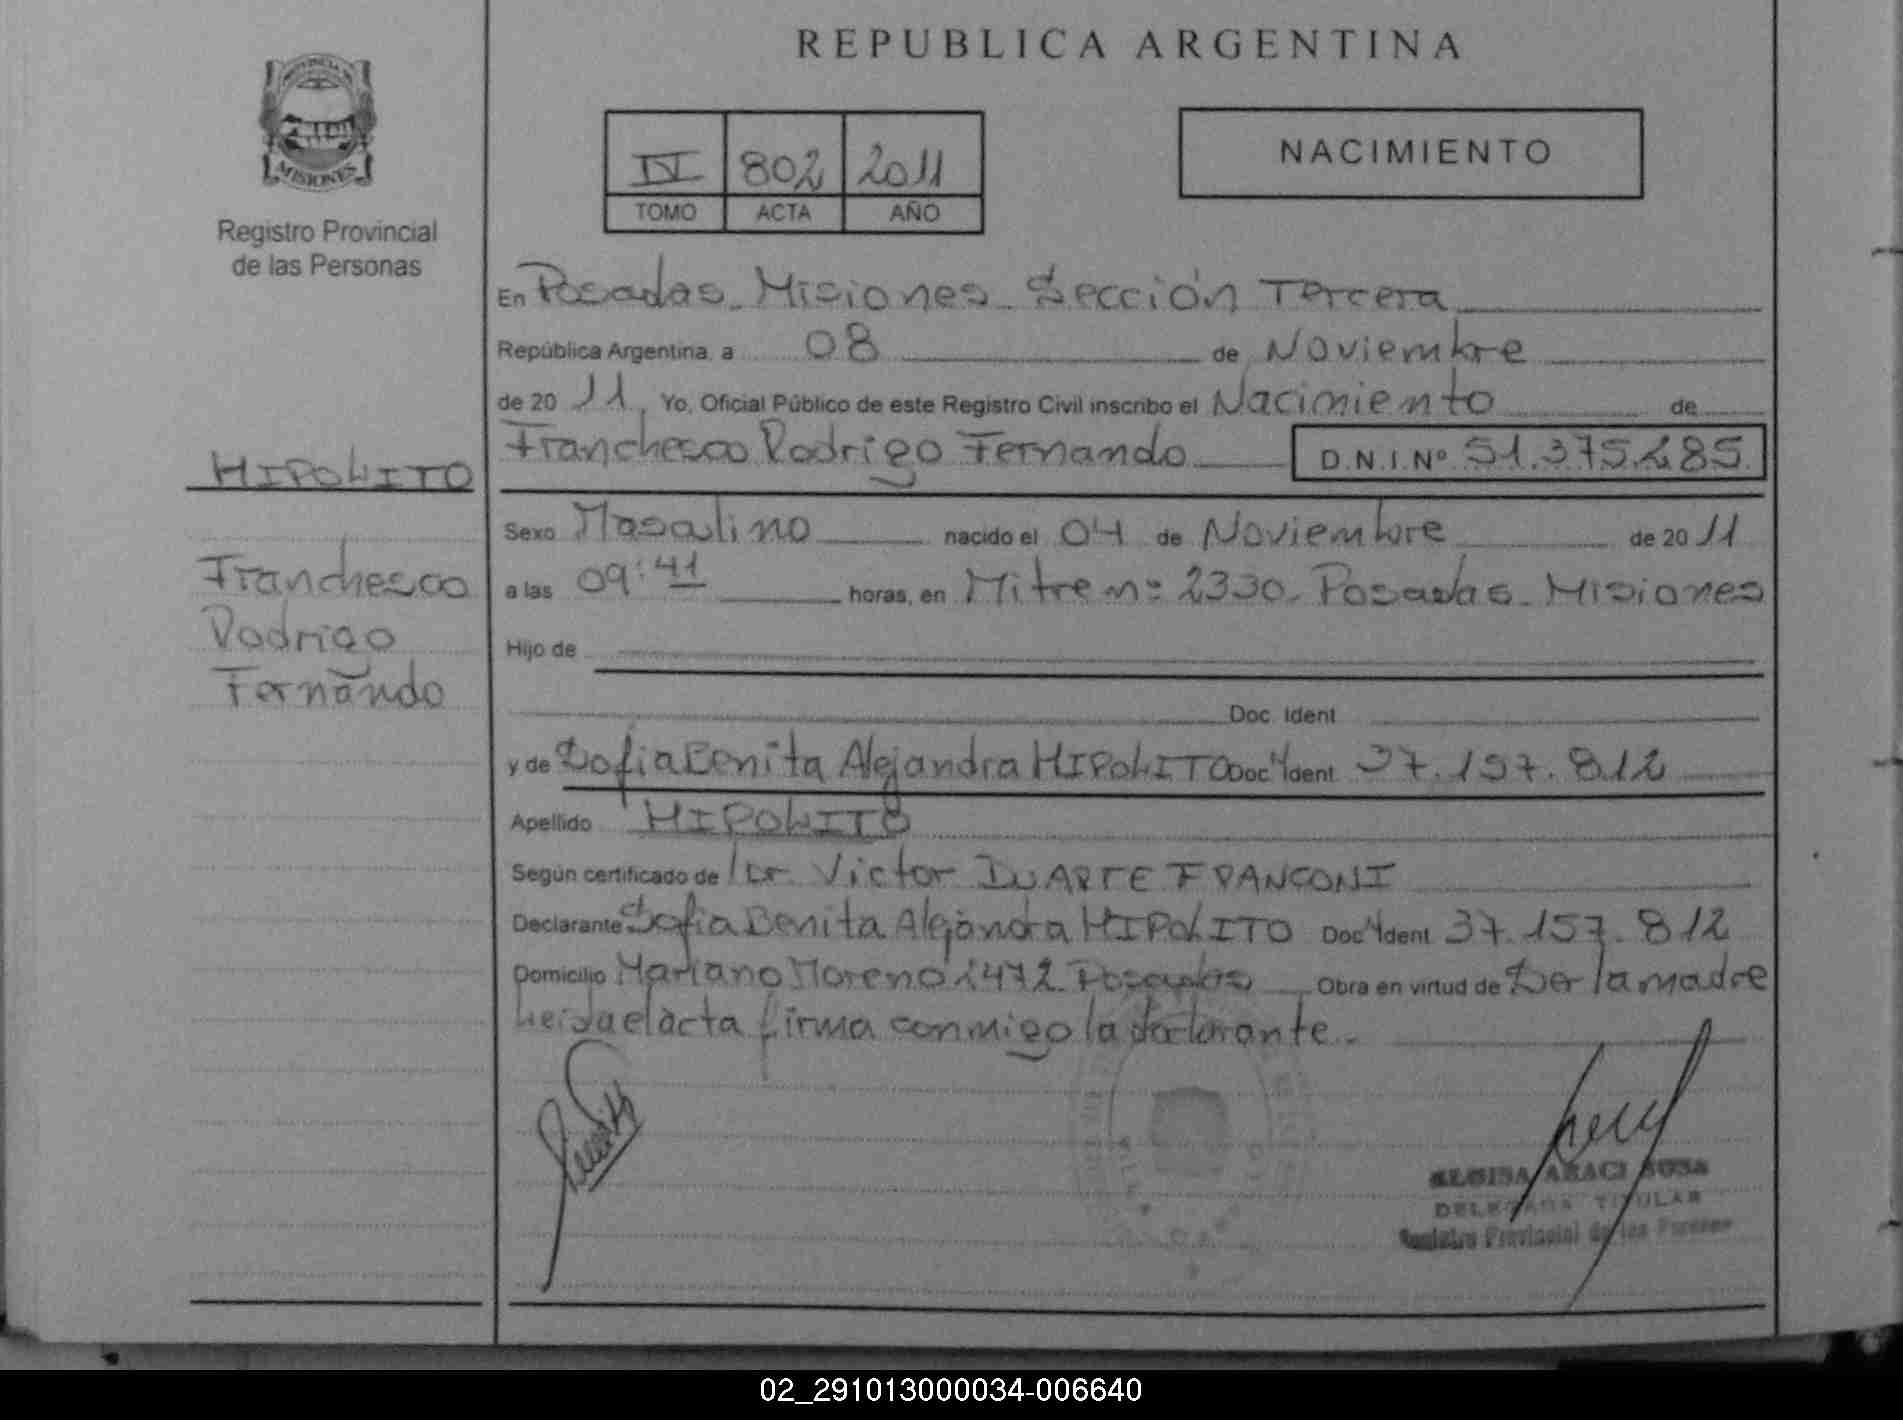 PROVINCIA DE
MISIONES
Registro Provincial
de las Personas
HIPOLITO
Franchesco
Rodrigo
Fernando
REPUBLICA ARGENTINA
IV 802 2011
TOMO ACTA AÑO
NACIMIENTO
En Posadas - Misiones - Sección Tercera
República Argentina, a 08 de Noviembre
de 20 11, Yo, Oficial Público de este Registro Civil inscribo el Nacimiento de
Franchesco Rodrigo Fernando D.N.I.Nº 51.375.285
Sexo Masculino nacido el 04 de Noviembre de 20 11
a las 09:41 horas, en Mitre nº 2330 - Posadas - Misiones
Hijo de
Doc. Ident
y de Sofia Benita Alejandra HIPOLITO Doc. Ident 37.157.812
Apellido HIPOLITO
Según certificado de Dr. Victor DUARTE FRANCONI
Declarante Sofia Benita Alejandra HIPOLITO Doc. Ident 37.157.812
Domicilio Mariano Moreno 2472 Posadas Obra en virtud de Ser la madre
Leida el acta firma conmigo la declarante.-
ELOISA ARACI SOSA
DELEGADA TITULAR
Registro Provincial de las Personas
02_291013000034-006640